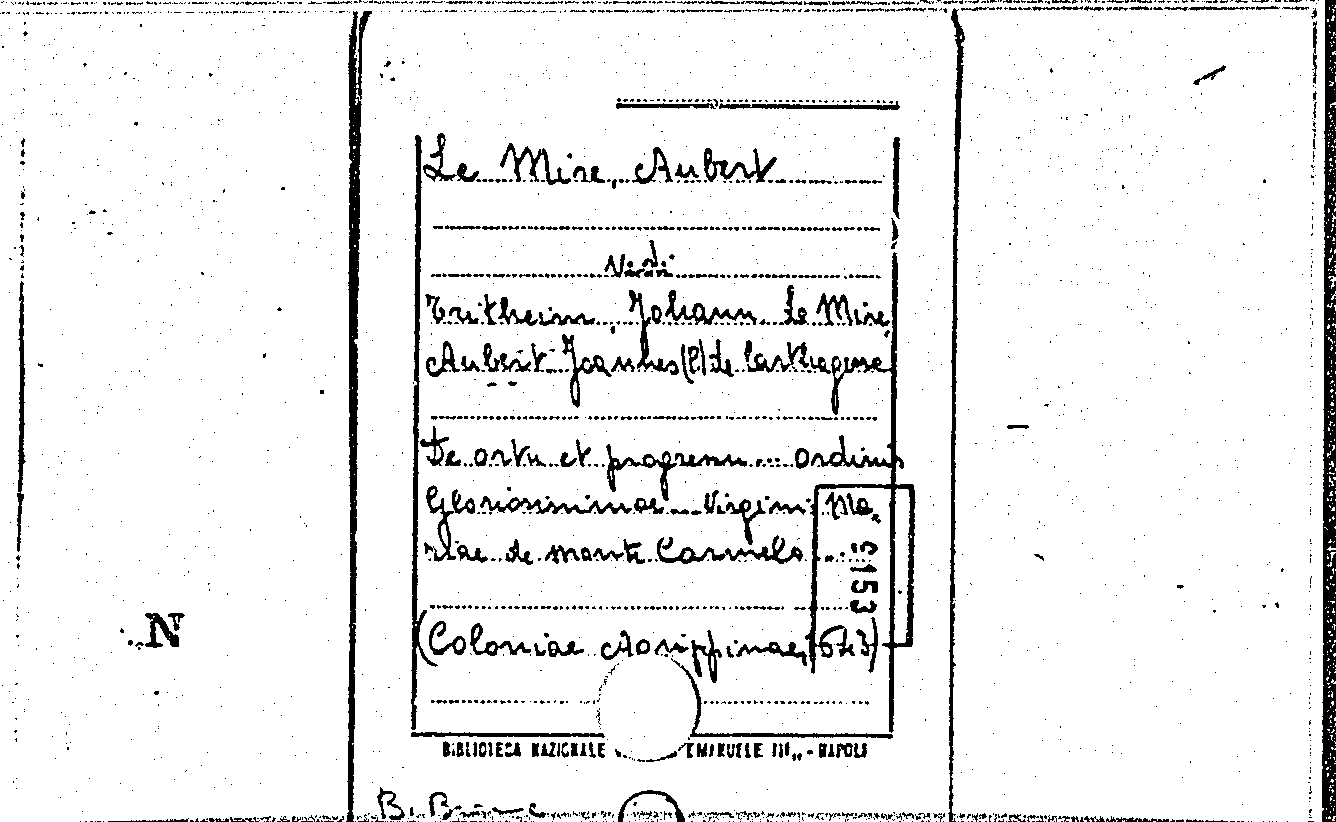 Le Mire, Aubert
Vedi
Tritheim, Johann. Le Mire,
Aubert. Joannes (?) de Carthagena
De ortu et progressu... ordinis
Gloriosissimae... Virginis Ma-
riae de monte Carmelo...
C153
(Coloniae Agrippinae, 1643)
BIBLIOTECA NAZIONALE EMANUELE III,, - NAPOLI
N
B.